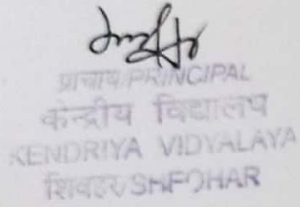 प्राचार्य/PRINCIPAL
केन्द्रीय विद्यालय
KENDRIYA VIDYALAYA
शिवहर/SHEOHAR